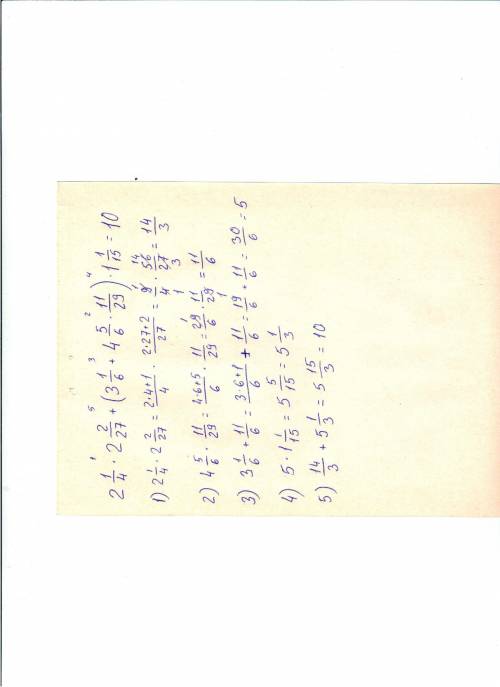 2 1/4 · 2 2/27 + (3 1/6 + 4 5/6 · 11/29) · 1 1/15 = 10
1) 2 1/4 · 2 2/27 = (2·4+1)/4 · (2·27+2)/27 = 9/4 · 56/27 = 14/3
2) 4 5/6 · 11/29 = (4·6+5)/6 · 11/29 = 29/6 · 11/29 = 11/6
3) 3 1/6 + 11/6 = (3·6+1)/6 + 11/6 = 19/6 + 11/6 = 30/6 = 5
4) 5 · 1 1/15 = 5 5/15 = 5 1/3
5) 14/3 + 5 1/3 = 5 15/3 = 10